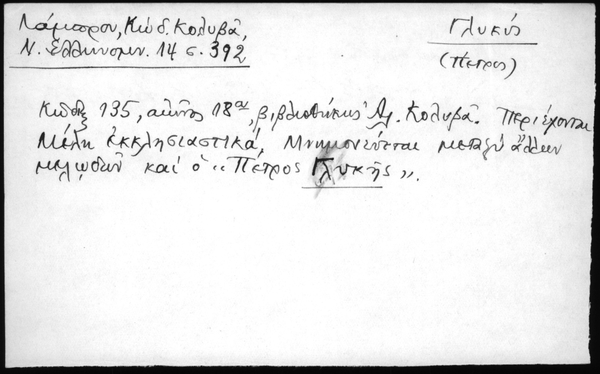 Λάμπρου, Κώδ. Κολυβᾶ,
Ν. Ἑλληνομν. 14 σ. 392
Γλυκύς
(Πέτρος)
Κῶδιξ 135, αἰῶνος 18ου, βιβλιοθήκης Ἀλ. Κολυβᾶ. Περιέχονται
Μέλη ἐκκλησιαστικά, Μνημονεύεται μεταξύ ἄλλων
μελῳδῶν καί ὁ "Πέτρος Γλυκῆς".